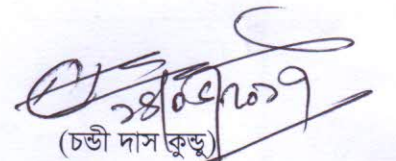 ১৪/০৫/২০১৭
(চন্ডী দাস কুন্ডু)